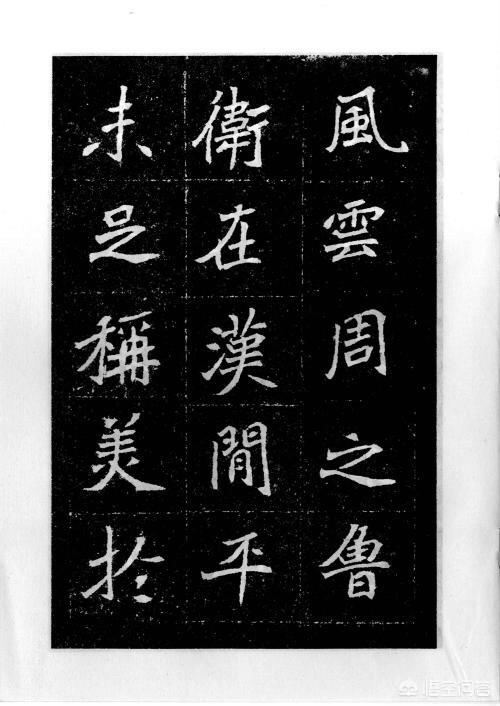 風雲周之魯
衛在漢間平
未足稱美於
悟空问答